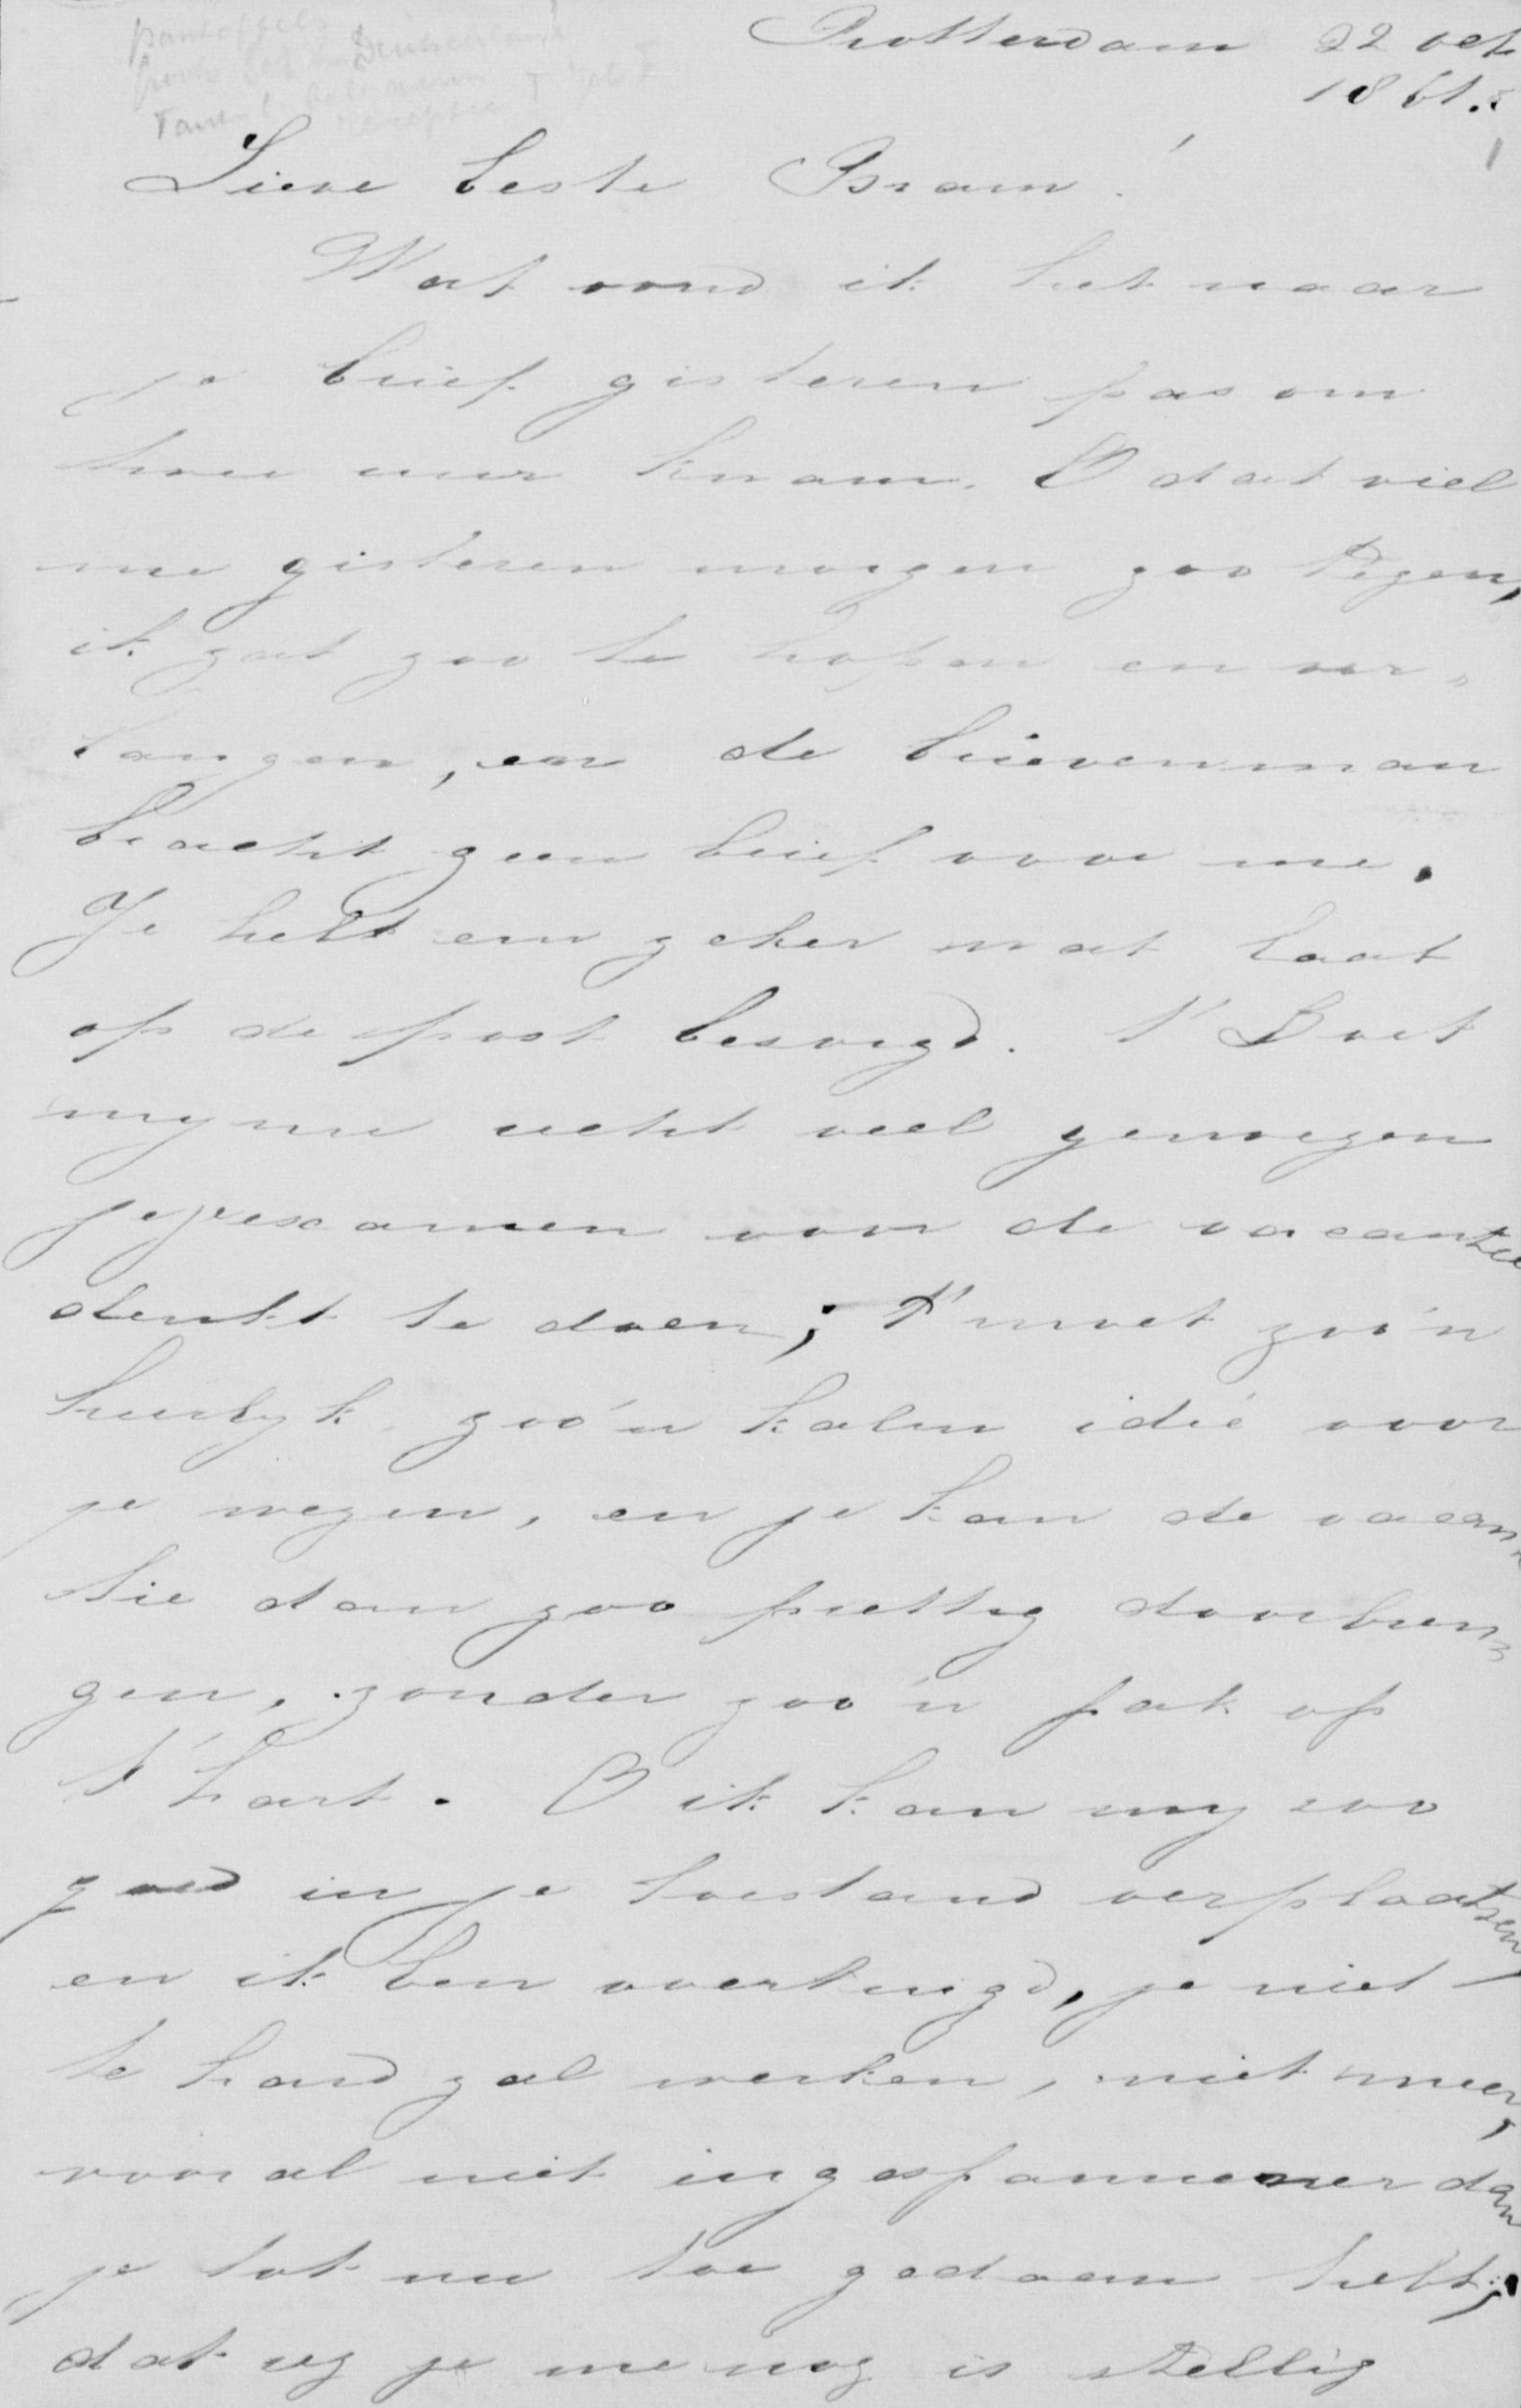 pantoffels
Rotterdam 22 oct
1861.
Lieve beste Bram!
Wat vond ik het naar
je brief gisteren pas om
twee uur kwam. O dat viel
me gisteren morgen zoo tegen,
ik zat zoo te hopen en ver„
langen, en de brievenman
bracht geen brief voor me.
Je hebt em zeker wat laat
op de post bezorgd. t' Doet
my nu recht veel genoegen
je je examen voor de vacantie
denkt te doen; t' moet zoo'n
heerlyk zoo'n kalm idée voor
je wezen, en je kan de vacan„
tie dan zoo prettig doorbren„
gen, zonder zoo'n pak op
t' hart. O ik kan my zoo
goed in je toestand verplaatsen
en ik ben overtuigd, je niet
te hard zal werken, niet meer,
vooral niet ingespannener dan
je tot nu toe gedaan hebt;
dat zeg je me nog is stellig